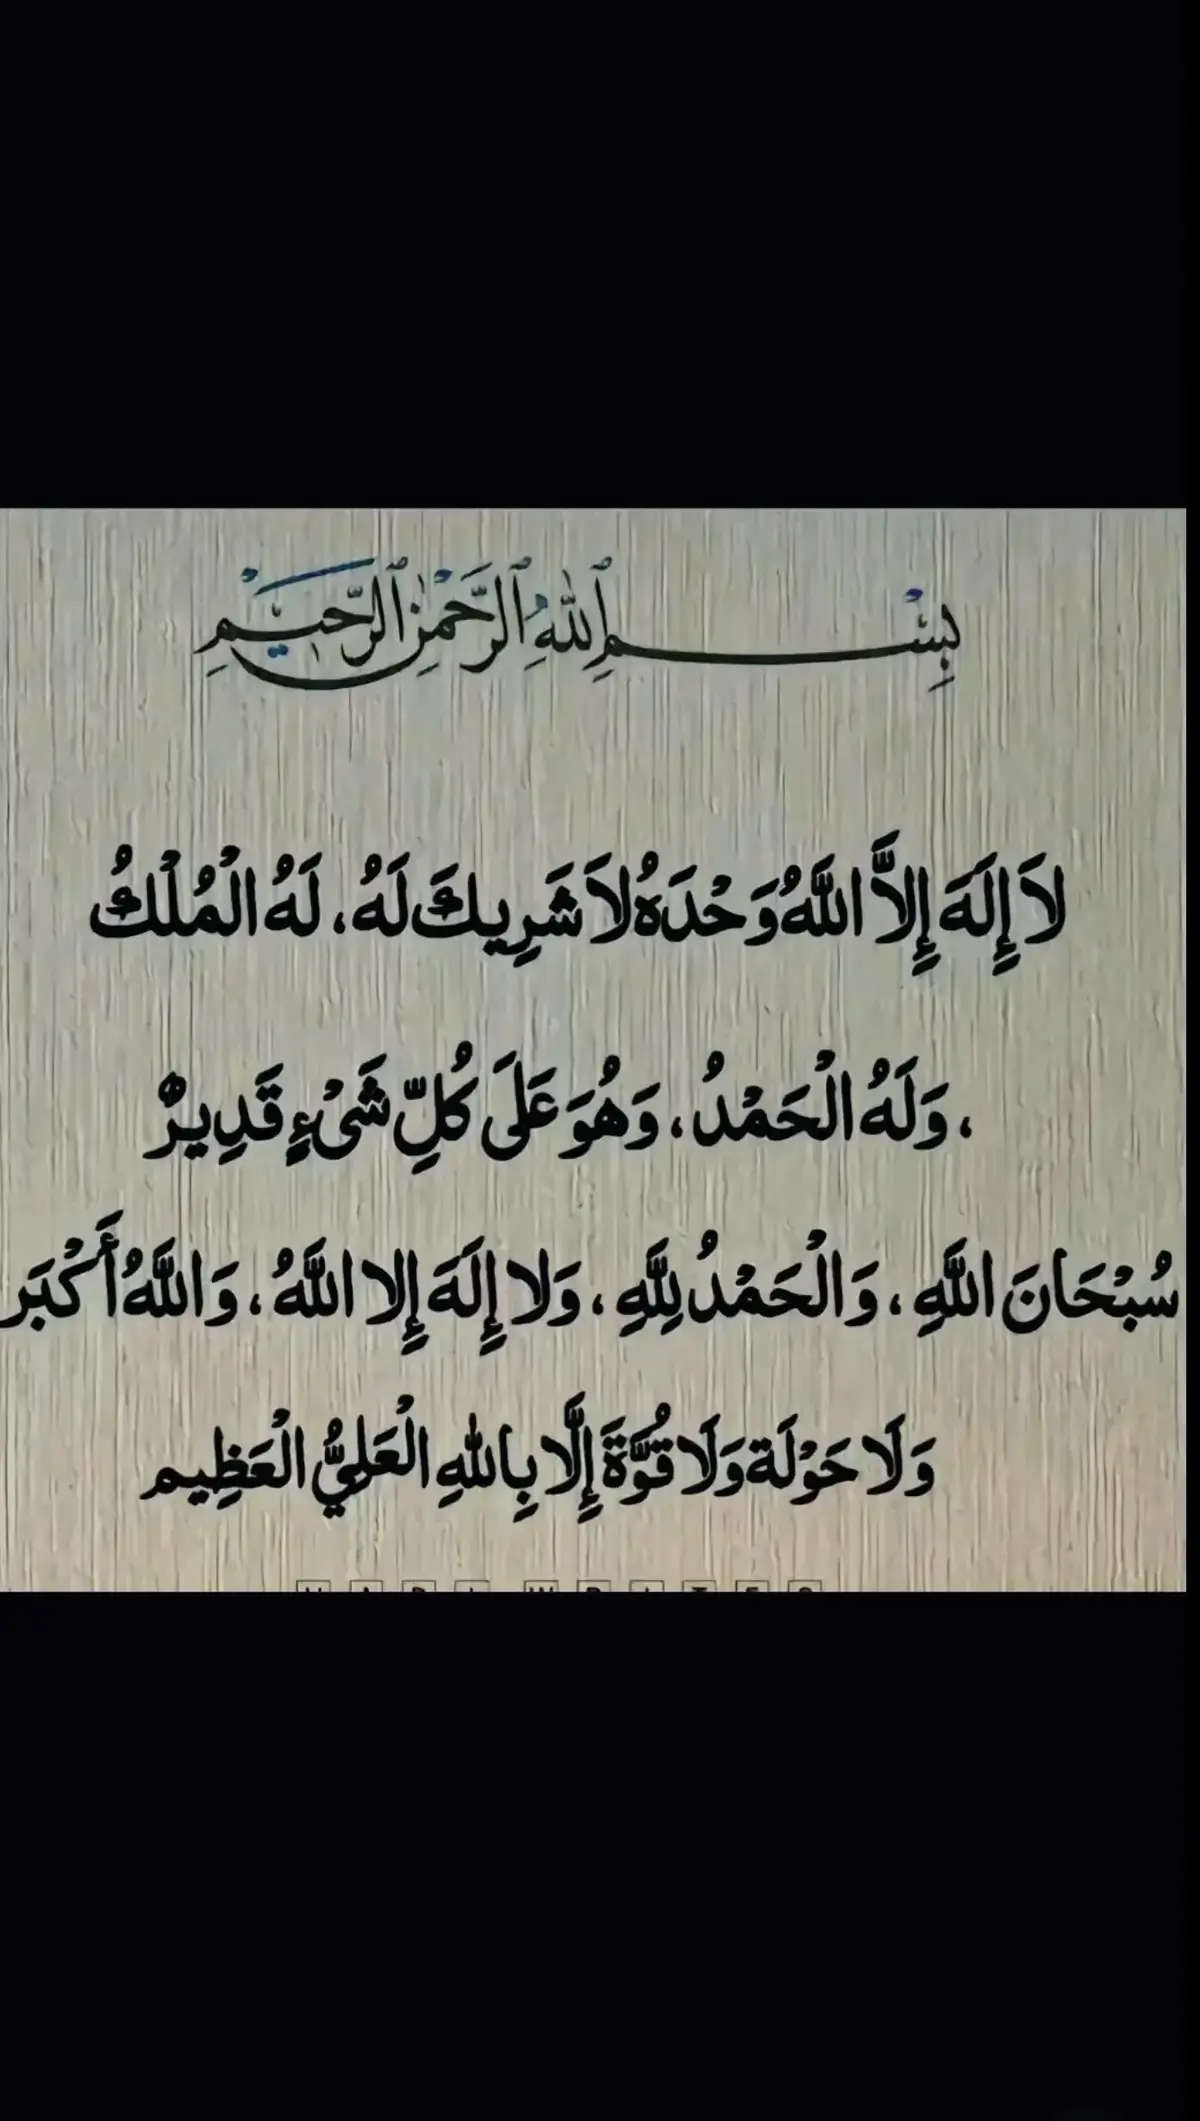 بِسْمِ ٱللَّهِ ٱلرَّحْمَٰنِ ٱلرَّحِيمِ
لاَ إِلَهَ إِلاَّ اللَّهُ وَحْدَهُ لاَ شَرِيكَ لَهُ، لَهُ الْمُلْكُ
، وَلَهُ الْحَمْدُ، وَهُوَ عَلَى كُلِّ شَىْءٍ قَدِيرٌ
سُبْحَانَ اللَّهِ، وَالْحَمْدُ لِلَّهِ، وَلا إِلَهَ إِلا اللَّهُ، وَاللَّهُ أَكْبَر
وَلَا حَوْلَة وَلَا قُوَّةَ إِلَّا بِاللهِ الْعَلِيُّ الْعَظِيم